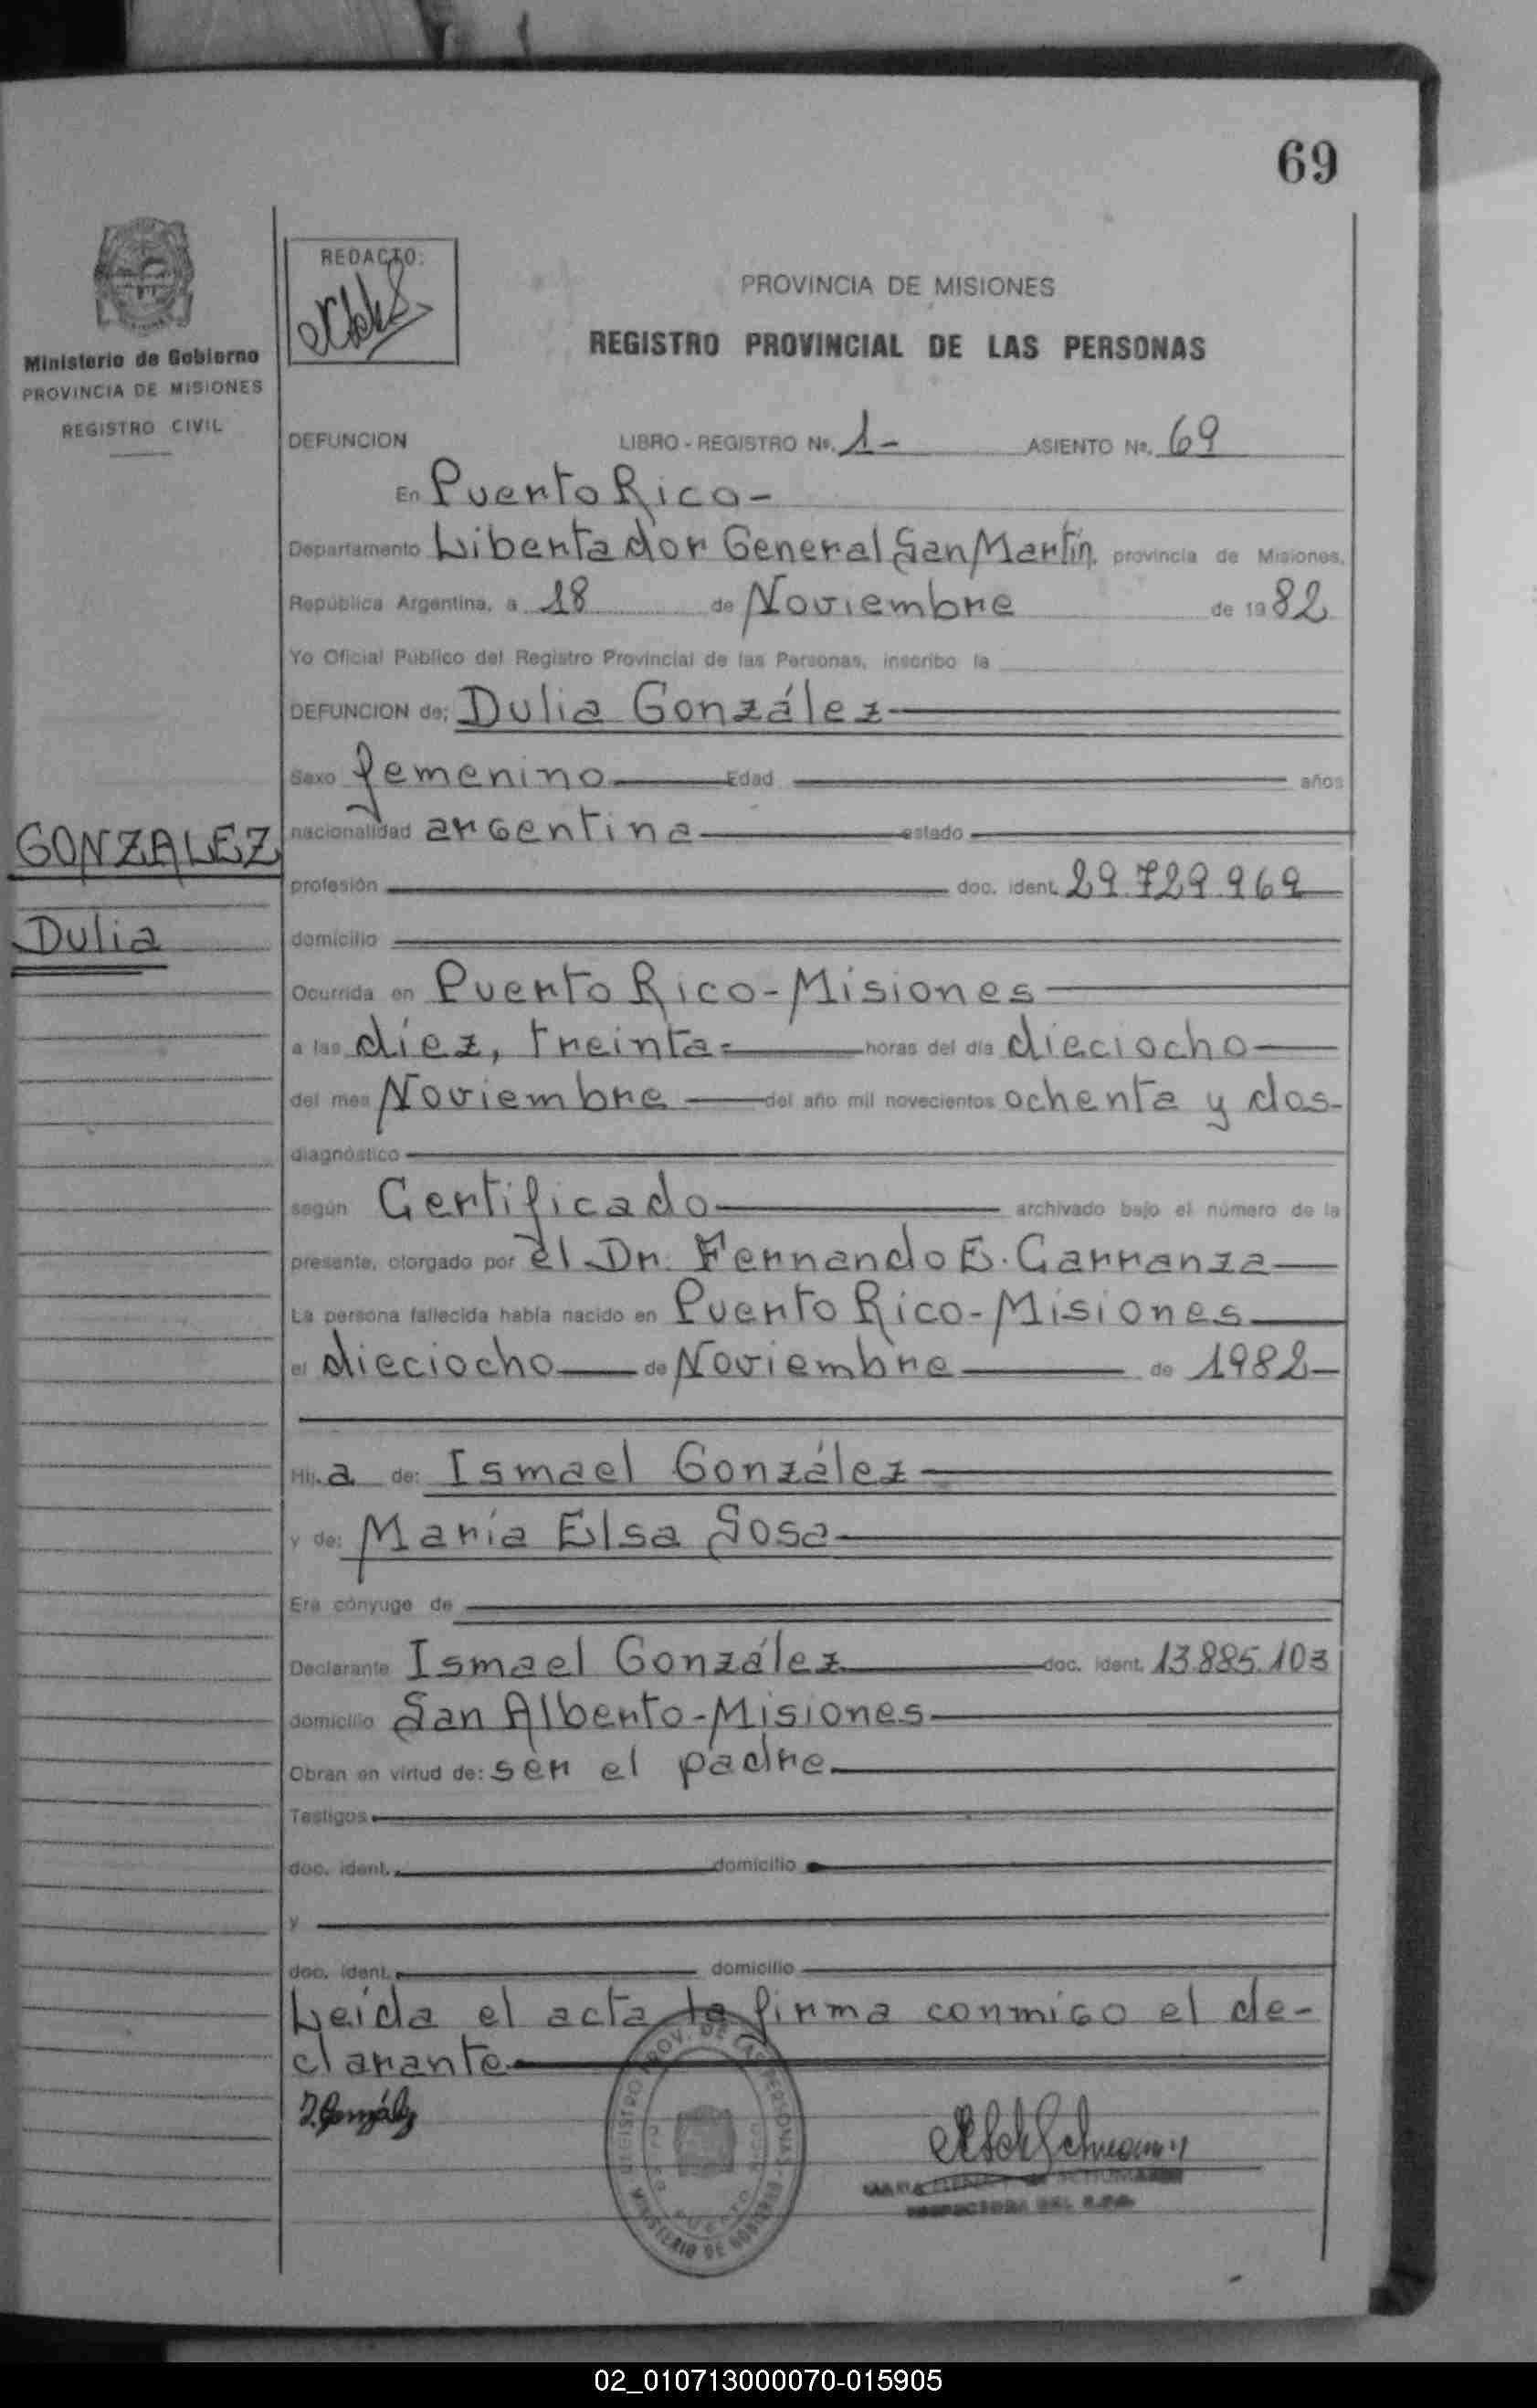 69
REDACTO:
PROVINCIA DE MISIONES
REGISTRO PROVINCIAL DE LAS PERSONAS
Ministerio de Gobierno
PROVINCIA DE MISIONES
REGISTRO CIVIL
DEFUNCION LIBRO - REGISTRO No. 1- ASIENTO No. 69
En Puerto Rico-
Departamento Libertador General San Martín, provincia de Misiones,
República Argentina, a 18 de Noviembre de 1982
Yo Oficial Público del Registro Provincial de las Personas, inscribo la
DEFUNCION de; Dulia González
Sexo femenino Edad años
GONZALEZ
nacionalidad argentina estado
profesión doc. ident. 29.729.969
Dulia
domicilio
Ocurrida en Puerto Rico-Misiones
a las diez, treinta- horas del día dieciocho
del mes Noviembre del año mil novecientos ochenta y dos-
diagnóstico
según Certificado archivado bajo el número de la
presente, otorgado por el Dr. Fernando E. Carranza
La persona fallecida había nacido en Puerto Rico-Misiones
el dieciocho de Noviembre de 1982-
Hij.a de: Ismael González
y de: María Elsa Sosa
Era cónyuge de
Declarante Ismael González doc. ident. 13.885.103
domicilio San Alberto-Misiones
Obran en virtud de: ser el padre
Testigos
doc. ident. domicilio
y
doc. ident. domicilio
Leída el acta la firma conmigo el de-
clarante
I. González
REGISTRO PROV. DE LAS PERSONAS
MINISTERIO DE GOBIERNO
INSPECTORA DEL R.P.P.
02_010713000070-015905